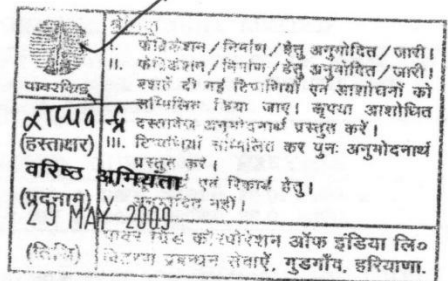 श्रेणी
I. फेब्रिकेशन/निर्माण/हेतु अनुमोदित/जारी।
II. फेब्रिकेशन/निर्माण/हेतु अनुमोदित/जारी।
बशर्ते दी गई टिप्पणियों एवं आशोधनों को
सम्मिलित किया जाए। कृपया आशोधित
दस्तावेज अनुमोदनार्थ प्रस्तुत करें।
III. टिप्पणियाँ सम्मिलित कर पुनः अनुमोदनार्थ
प्रस्तुत करें।
एवं रिकार्ड हेतु।
अनुमोदित नहीं।
पावरग्रिड
(हस्ताक्षर)
वरिष्ठ अभियंता
(पदनाम)
29 MAY 2009
(तिथि)
पावर ग्रिड कॉरपोरेशन ऑफ इंडिया लि०
प्रबन्धन सेवाएँ, गुडगाँव, हरियाणा.